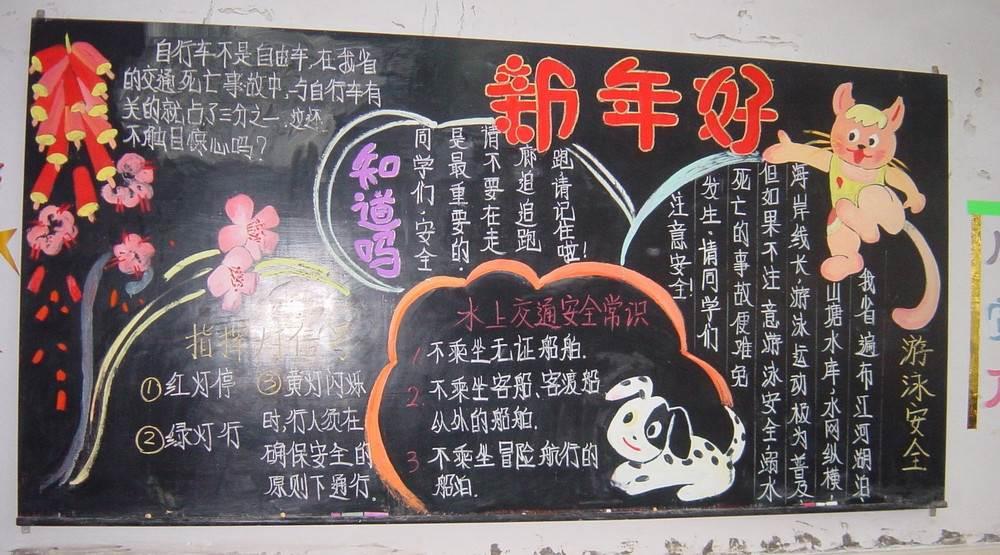 新年好
自行车不是自由车，在我省
的交通死亡事故中，与自行车有
关的就占了三分之一，这还
不触目惊心吗？
知道吗
同学们，安全
是最重要的，
请不要在走
廊追追跑
跑请记住啦！
游泳安全
我省遍布江河湖泊
山塘水库，水网纵横，
海岸线长，游泳运动极为普及
但如果不注意游泳安全溺水
死亡的事故便难免
发生，请同学们
注意安全！
指挥灯信号
①红灯停
②绿灯行
③黄灯闪烁
时，行人须在
确保安全的
原则下通行。
水上交通安全常识
1 不乘坐无证船舶.
2. 不乘坐客船、客渡船
以外的船舶.
3 不乘坐冒险航行的
船泊.